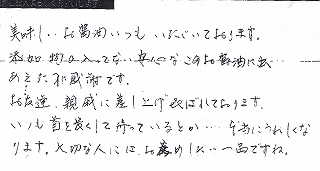 美味しいお醤油いつもいただいております。
添加物の入ってない安心なこのお醤油に出
あえた事に感謝です。
お友達、親戚に差し上げ喜ばれております。
いつも首を長くして待っているとか…本当にうれしくな
ります。大切な人にはお薦めしたい一品ですね。